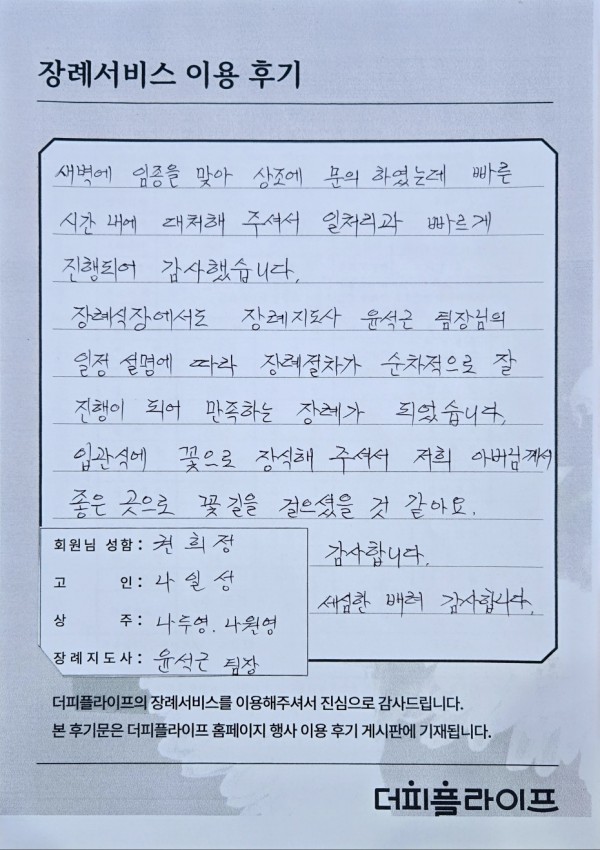 장례서비스 이용 후기
새벽에 임종을 맞아 상조에 문의 하였는데 빠른
시간 내에 대처해 주셔서 일처리과 빠르게
진행되어 감사했습니다.
장례식장에서도 장례지도사 윤석근 팀장님의
일정 설명에 따라 장례절차가 순차적으로 잘
진행이 되어 만족하는 장례가 되었습니다.
입관식에 꽃으로 장식해 주셔서 저희 아버님께서
좋은 곳으로 꽃길을 걸으셨을 것 같아요.
감사합니다.
세심한 배려 감사합니다.
회원님 성함 : 권희정
고 인 : 나일성
상 주 : 나두영. 나원영
장례지도사 : 윤석근 팀장
더피플라이프의 장례서비스를 이용해주셔서 진심으로 감사드립니다.
본 후기문은 더피플라이프 홈페이지 행사 이용 후기 게시판에 기재됩니다.
더피플라이프